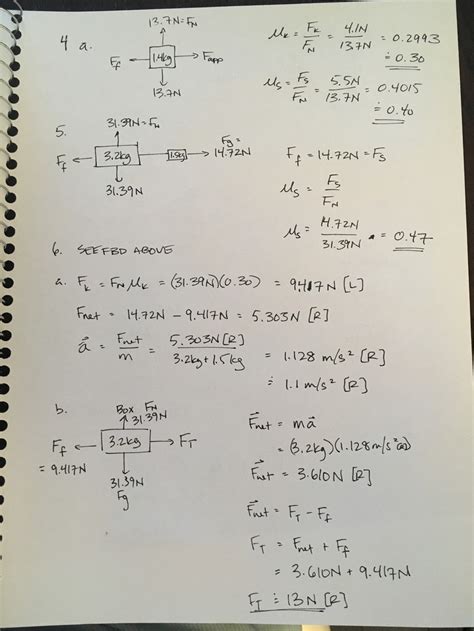 4 a.
13.7N=F_N
F_f ← 1.4kg → F_app
13.7N
μ_k = F_k/F_N = 4.1N/13.7N = 0.2993
≐ 0.30
μ_s = F_s/F_N = 5.5N/13.7N = 0.4015
≐ 0.40
5.
31.39N=F_N
F_f ← 3.2kg 1.5kg → F_g = 14.72N
31.39N
F_f = 14.72N = F_s
μ_s = F_s/F_N
μ_s = 14.72N/31.39N = 0.47
6. SEE FBD ABOVE
a. F_k = F_N μ_k = (31.39N)(0.30) = 9.417N [L]
F_net = 14.72N - 9.417N = 5.303N [R]
a⃗ = F_net/m = 5.303N [R]/3.2kg+1.5kg = 1.128 m/s² [R]
≐ 1.1 m/s² [R]
b.
BOX F_N
31.39N
F_f ← 3.2kg → F_T
= 9.417N
31.39N
F_g
F⃗_net = ma⃗
= (3.2kg)(1.128m/s²
F⃗_net = 3.610N [R]
F⃗_net = F_T - F_f
F_T = F_net + F_f
= 3.610N + 9.417N
F_T ≐ 13N [R]